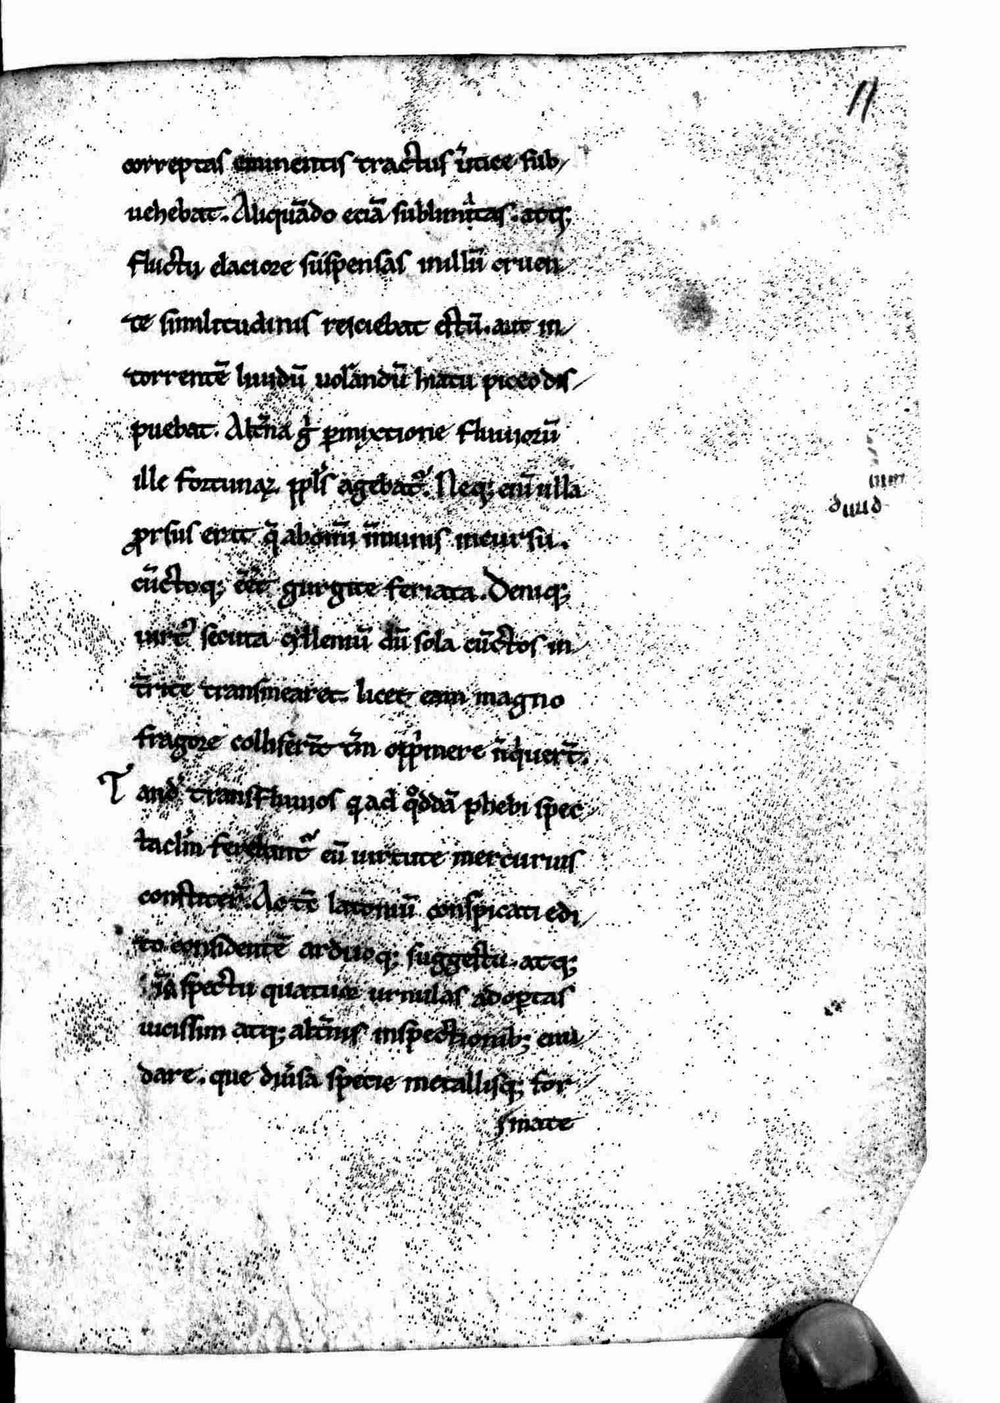 11
correptas eminentis tractus ūtice sub
uehebat. Aliquādo eciā sublimítas. atq;
fluctu elaciore suspensas in illū cruen
te similitudinis reiciebat estū. aut in
torrentē liuidū uolandū hiatu piceo dis
puebat. Alt̄na g̊ ꝑmyxtione fluuiorū
ille fortunaꝝ ppl̄s agebat᷑. Neq; enī ulla
ꝓrsus erat q̄ ab omī īmunis incursu.
cūctoq; eēt gurgite feriata. Deniq;
uirt᷑ secuta cyllleniū cū sola cūctos in
t̄rite transmearet. licet eam magno
fragore colliserīt tm̄ opp̍mere n̄ q̍uert̄.
Tand̄ trans fluuios q̍ ad q̊ddā phebi spec
taclm̄ ferebant᷑ cū uirtute mercurius
constiter̄. Ac tē latoniū conspicati edi
to considentē arduoq; suggestu. atq;
īspectu quatuor urnulas adoptas
uicissim atq; alt̄nis inspectionib; enu
dare. que diūsa specie metallisq; for
mate